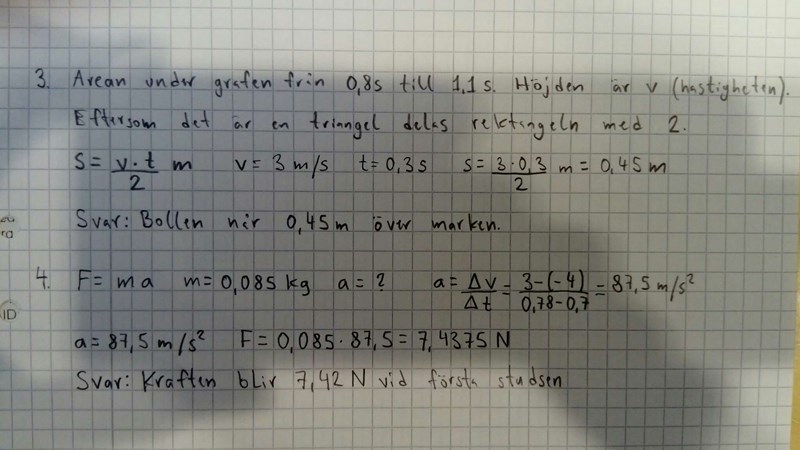 3. Arean under grafen från 0,8s till 1,1 s. Höjden är v (hastigheten).
Eftersom det är en triangel delas rektangeln med 2.
S = v · t / 2 m v = 3 m/s t = 0,3 s s = 3 · 0,3 / 2 m = 0,45 m
Svar: Bollen når 0,45 m över marken.
4. F = m a m = 0,085 kg a = ? a = Δv / Δt = 3-(-4) / 0,78-0,7 = 87,5 m/s²
ID
a = 87,5 m/s² F = 0,085 · 87,5 = 7,4375 N
Svar: Kraften blir 7,42 N vid första studsen